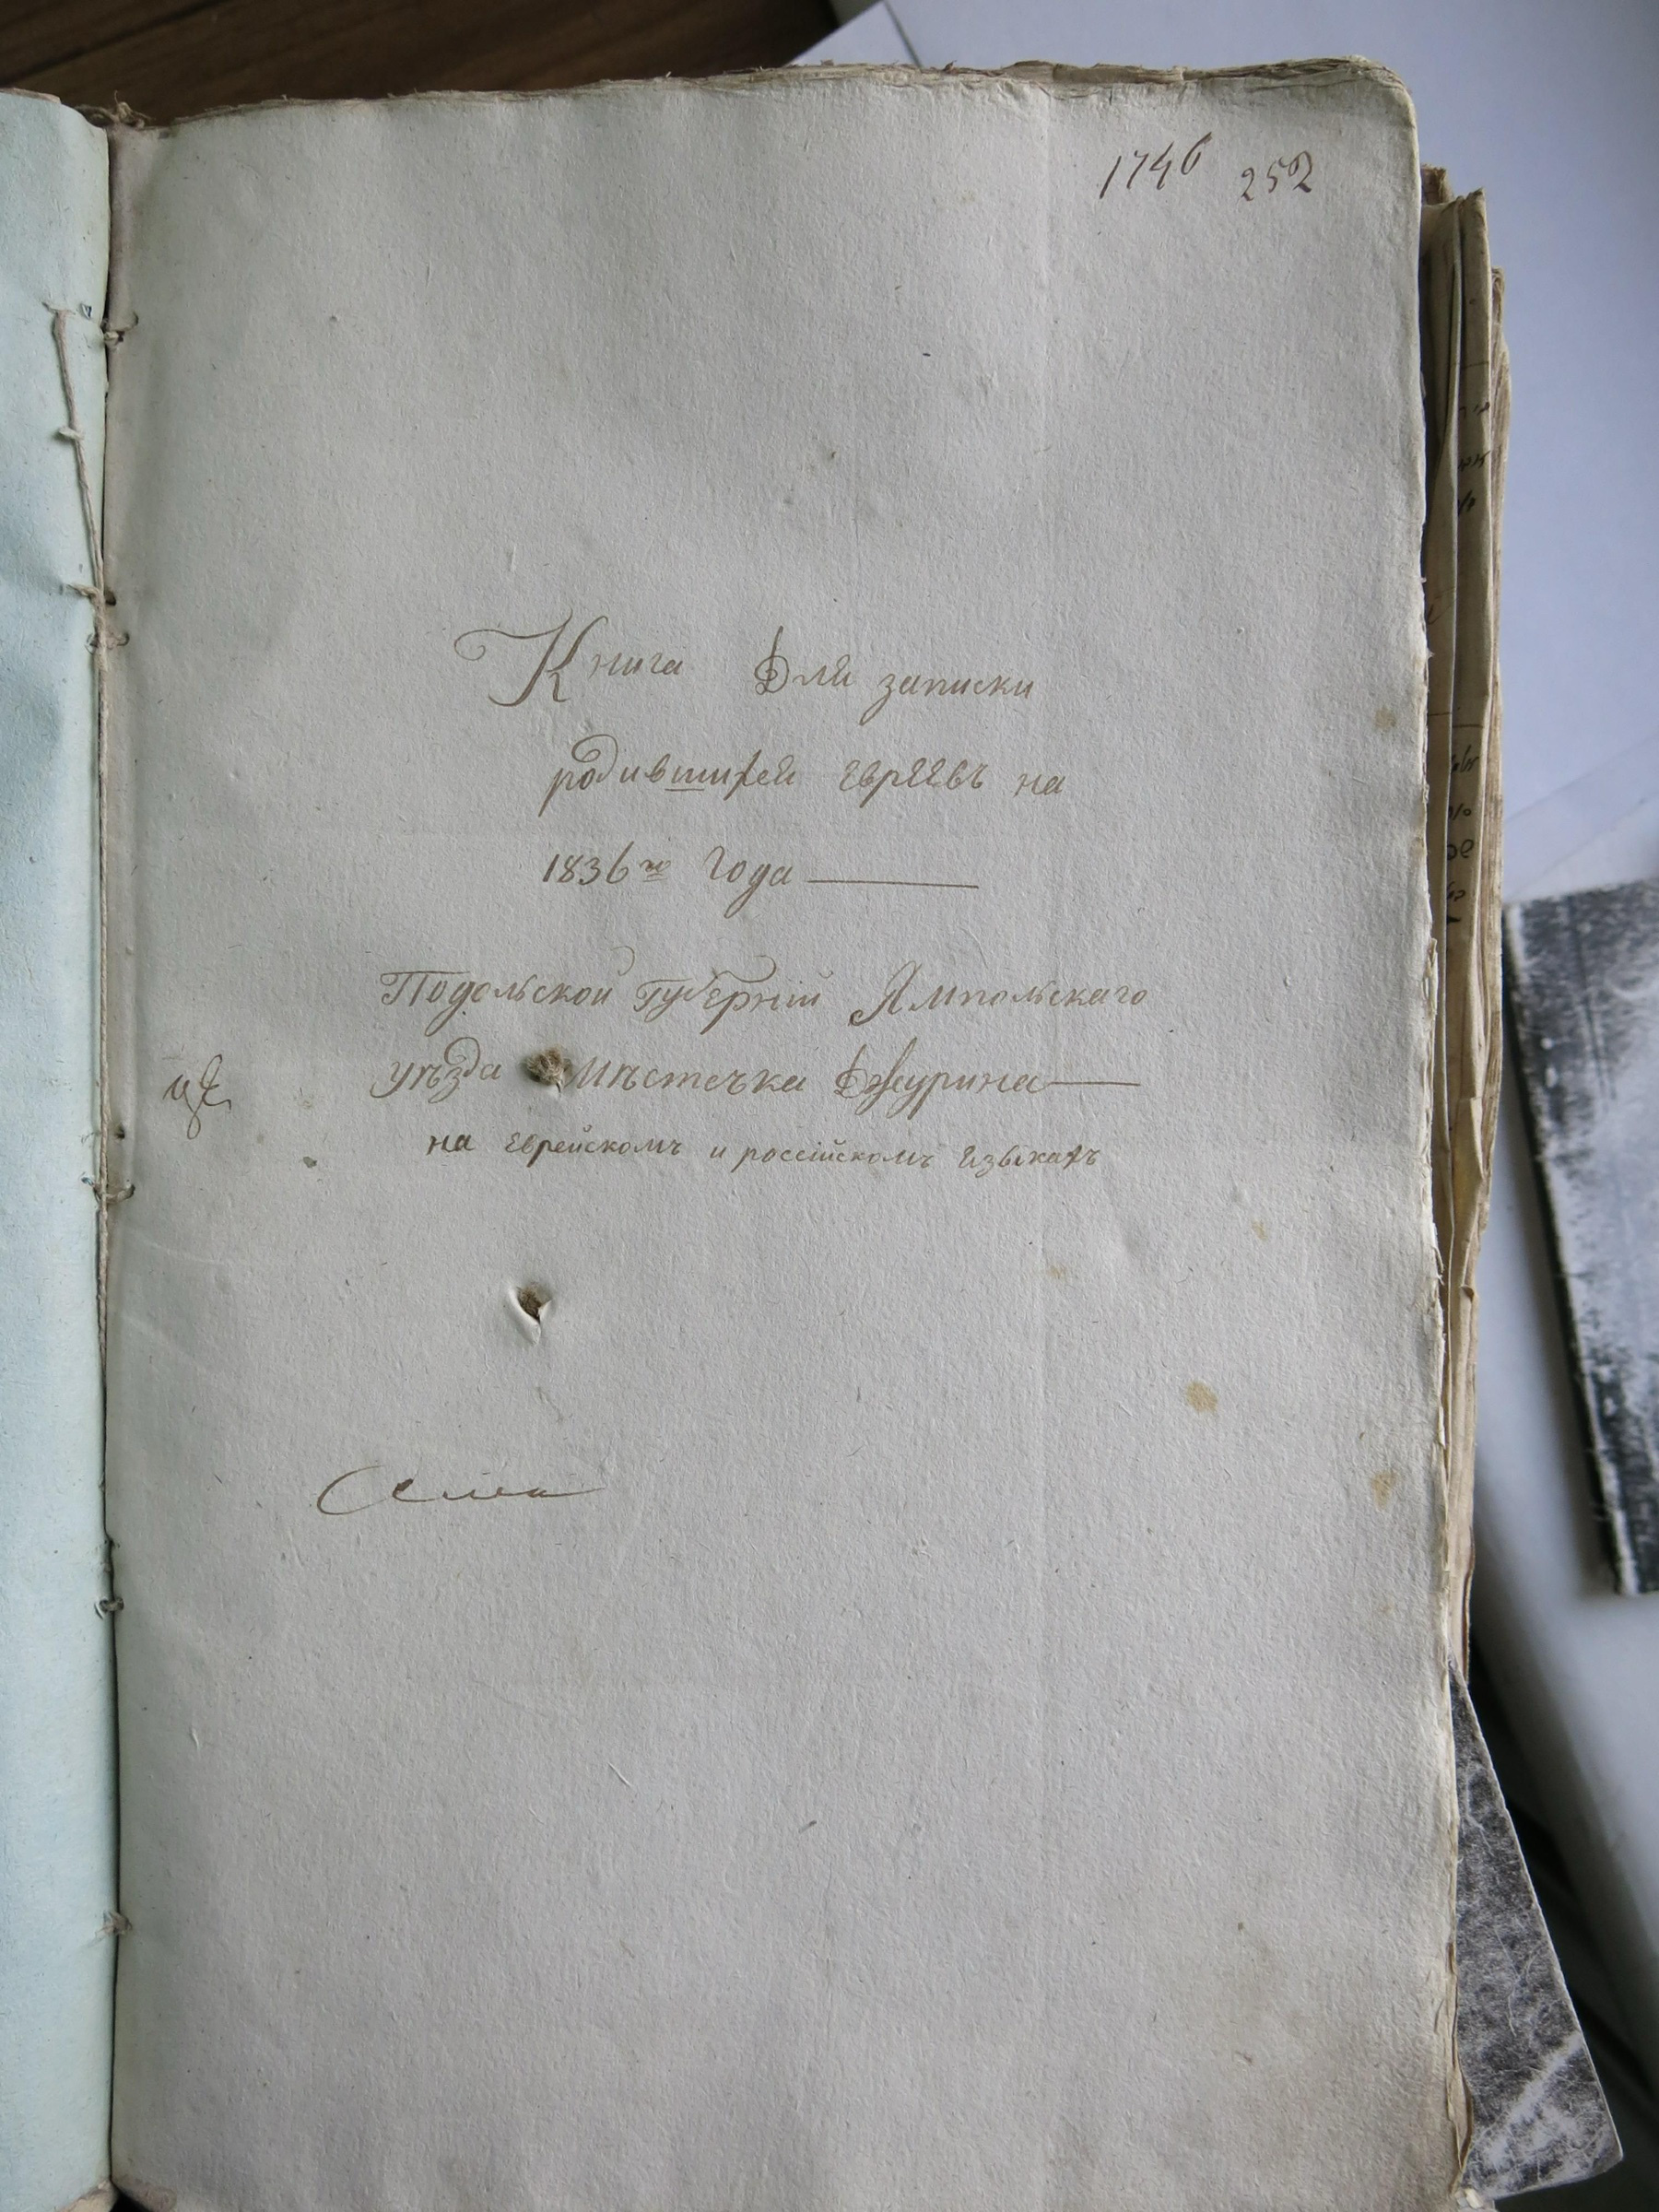 1746 252
Книга Для записки
родившихся евреевъ на
1836го Года
Подольской Губерніи Ямпольскаго
уѣзда Мѣстечка Джурина
на еврейскомъ и россійскомъ языкахъ